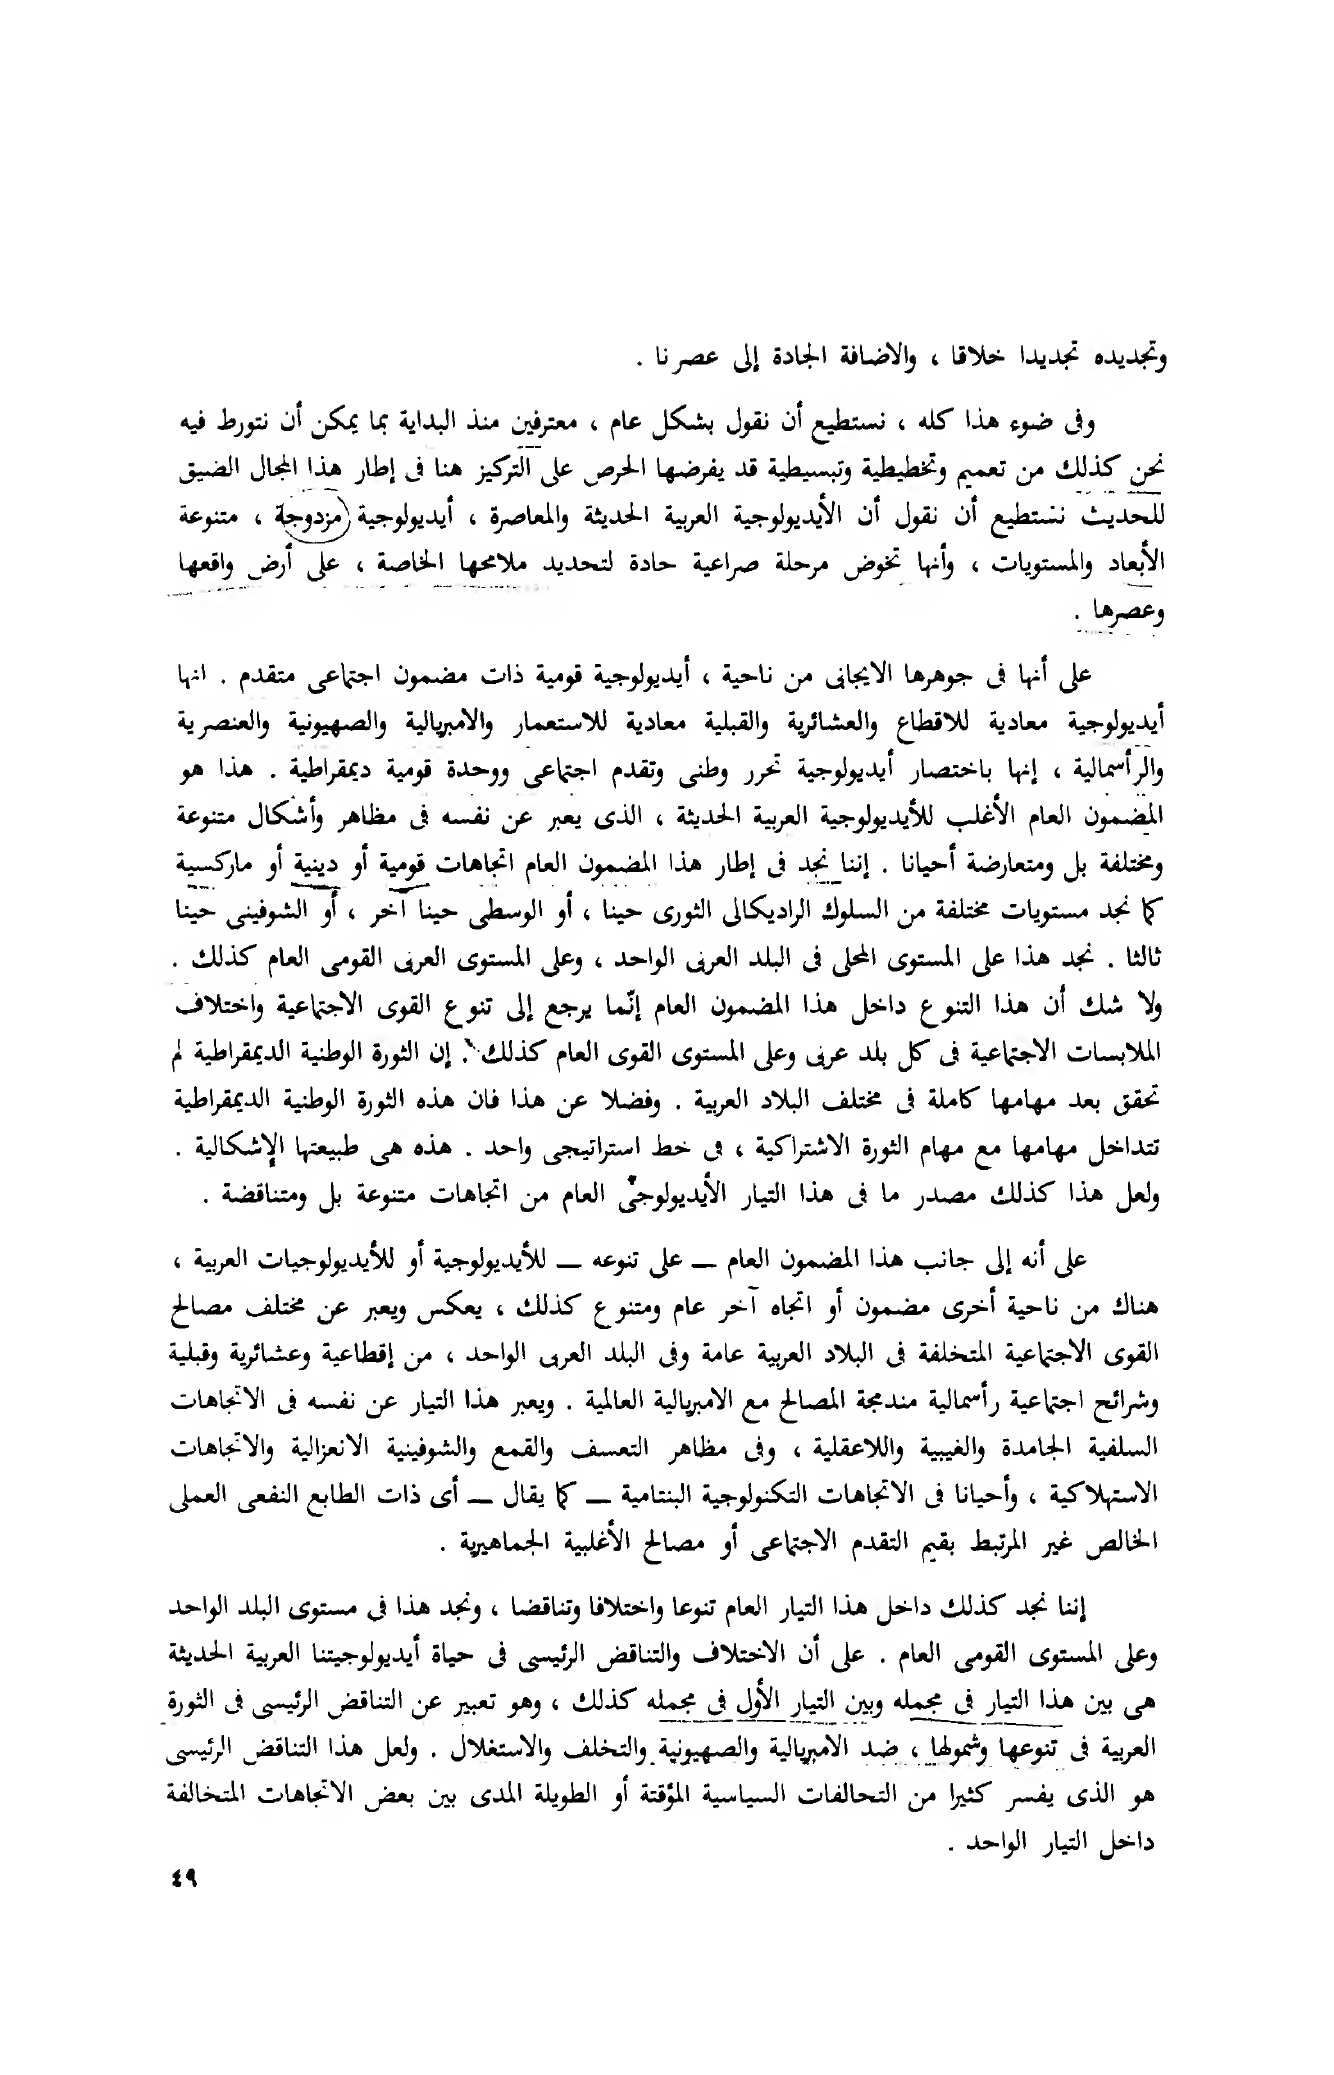 وتجديده تجديدا خلاقا ، والاضافة الجادة إلى عصرنا .
وفى ضوء هذا كله ، نستطيع أن نقول بشكل عام ، معترفين منذ البداية بما يمكن أن نتورط فيه
نحن كذلك من تعميم وتخطيطية وتبسيطية قد يفرضها الحرص على التركيز هنا فى إطار هذا المجال الضيق
للحديث نستطيع أن نقول أن الأيديولوجية العربية الحديثة والمعاصرة ، أيديولوجية (مزدوجة ، متنوعة
الأبعاد والمستويات ، وأنها تخوض مرحلة صراعية حادة لتحديد ملامحها الخاصة ، على أرض واقعها
وعصرها .
على أنها فى جوهرها الايجابى من ناحية ، أيديولوجية قومية ذات مضمون اجتماعى متقدم . انها
أيديولوجية معادية للاقطاع والعشائرية والقبلية معادية للاستعمار والامبريالية والصهيونية والعنصرية
والرأسمالية ، إنها باختصار أيديولوجية تحرر وطنى وتقدم اجتماعى ووحدة قومية ديمقراطية . هذا هو
المضمون العام الأغلب للأيديولوجية العربية الحديثة ، الذى يعبر عن نفسه فى مظاهر وأشكال متنوعة
ومختلفة بل ومتعارضة أحيانا . إننا نجد فى إطار هذا المضمون العام اتجاهات قومية أو دينية أو ماركسية
كما نجد مستويات مختلفة من السلوك الراديكالى الثورى حينا ، أو الوسطى حينا آخر ، أو الشوفينى حينا
ثالثا . نجد هذا على المستوى المحلى فى البلد العربى الواحد ، وعلى المستوى العربى القومى العام كذلك .
ولا شك أن هذا التنوع داخل هذا المضمون العام إنّما يرجع إلى تنوع القوى الاجتماعية واختلاف
الملابسات الاجتماعية فى كل بلد عربى وعلى المستوى القوى العام كذلك . إن الثورة الوطنية الديمقراطية لم
تحقق بعد مهامها كاملة فى مختلف البلاد العربية . وفضلا عن هذا فان هذه الثورة الوطنية الديمقراطية
تتداخل مهامها مع مهام الثورة الاشتراكية ، فى خط استراتيجى واحد . هذه هى طبيعتها الإشكالية .
ولعل هذا كذلك مصدر ما فى هذا التيار الأيديولوجى العام من اتجاهات متنوعة بل ومتناقضة .
على أنه إلى جانب هذا المضمون العام — على تنوعه — للأيديولوجية أو للأيديولوجيات العربية ،
هناك من ناحية أخرى مضمون أو اتجاه آخر عام ومتنوع كذلك ، يعكس ويعبر عن مختلف مصالح
القوى الاجتماعية المتخلفة فى البلاد العربية عامة وفى البلد العربى الواحد ، من إقطاعية وعشائرية وقبلية
وشرائح اجتماعية رأسمالية مندمجة المصالح مع الامبريالية العالمية . ويعبر هذا التيار عن نفسه فى الاتجاهات
السلفية الجامدة والغيبية واللاعقلية ، وفى مظاهر التعسف والقمع والشوفينية الانعزالية والاتجاهات
الاستهلاكية ، وأحيانا فى الاتجاهات التكنولوجية البنتامية — كما يقال — أى ذات الطابع النفعى العملى
الخالص غير المرتبط بقيم التقدم الاجتماعى أو مصالح الأغلبية الجماهيرية .
إننا نجد كذلك داخل هذا التيار العام تنوعا واختلافا وتناقضا ، ونجد هذا فى مستوى البلد الواحد
وعلى المستوى القومى العام . على أن الاختلاف والتناقض الرئيسى فى حياة أيديولوجيتنا العربية الحديثة
هى بين هذا التيار فى مجمله وبين التيار الأول فى مجمله كذلك ، وهو تعبير عن التناقض الرئيسى فى الثورة
العربية فى تنوعها وشمولها ، ضد الامبريالية والصهيونية والتخلف والاستغلال . ولعل هذا التناقض الرئيسى
هو الذى يفسر كثيرا من التحالفات السياسية المؤقتة أو الطويلة المدى بين بعض الاتجاهات المتخالفة
داخل التيار الواحد .
٤٩